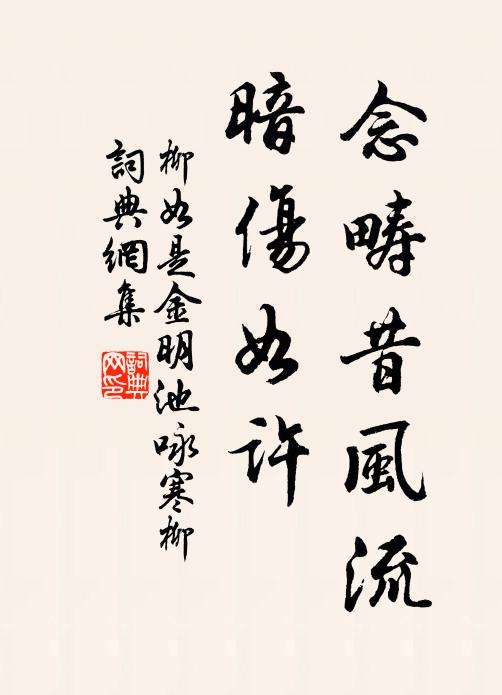 念疇昔風流
暗傷如許
柳如是金明池詠寒柳
詞典網集
詞典
网印